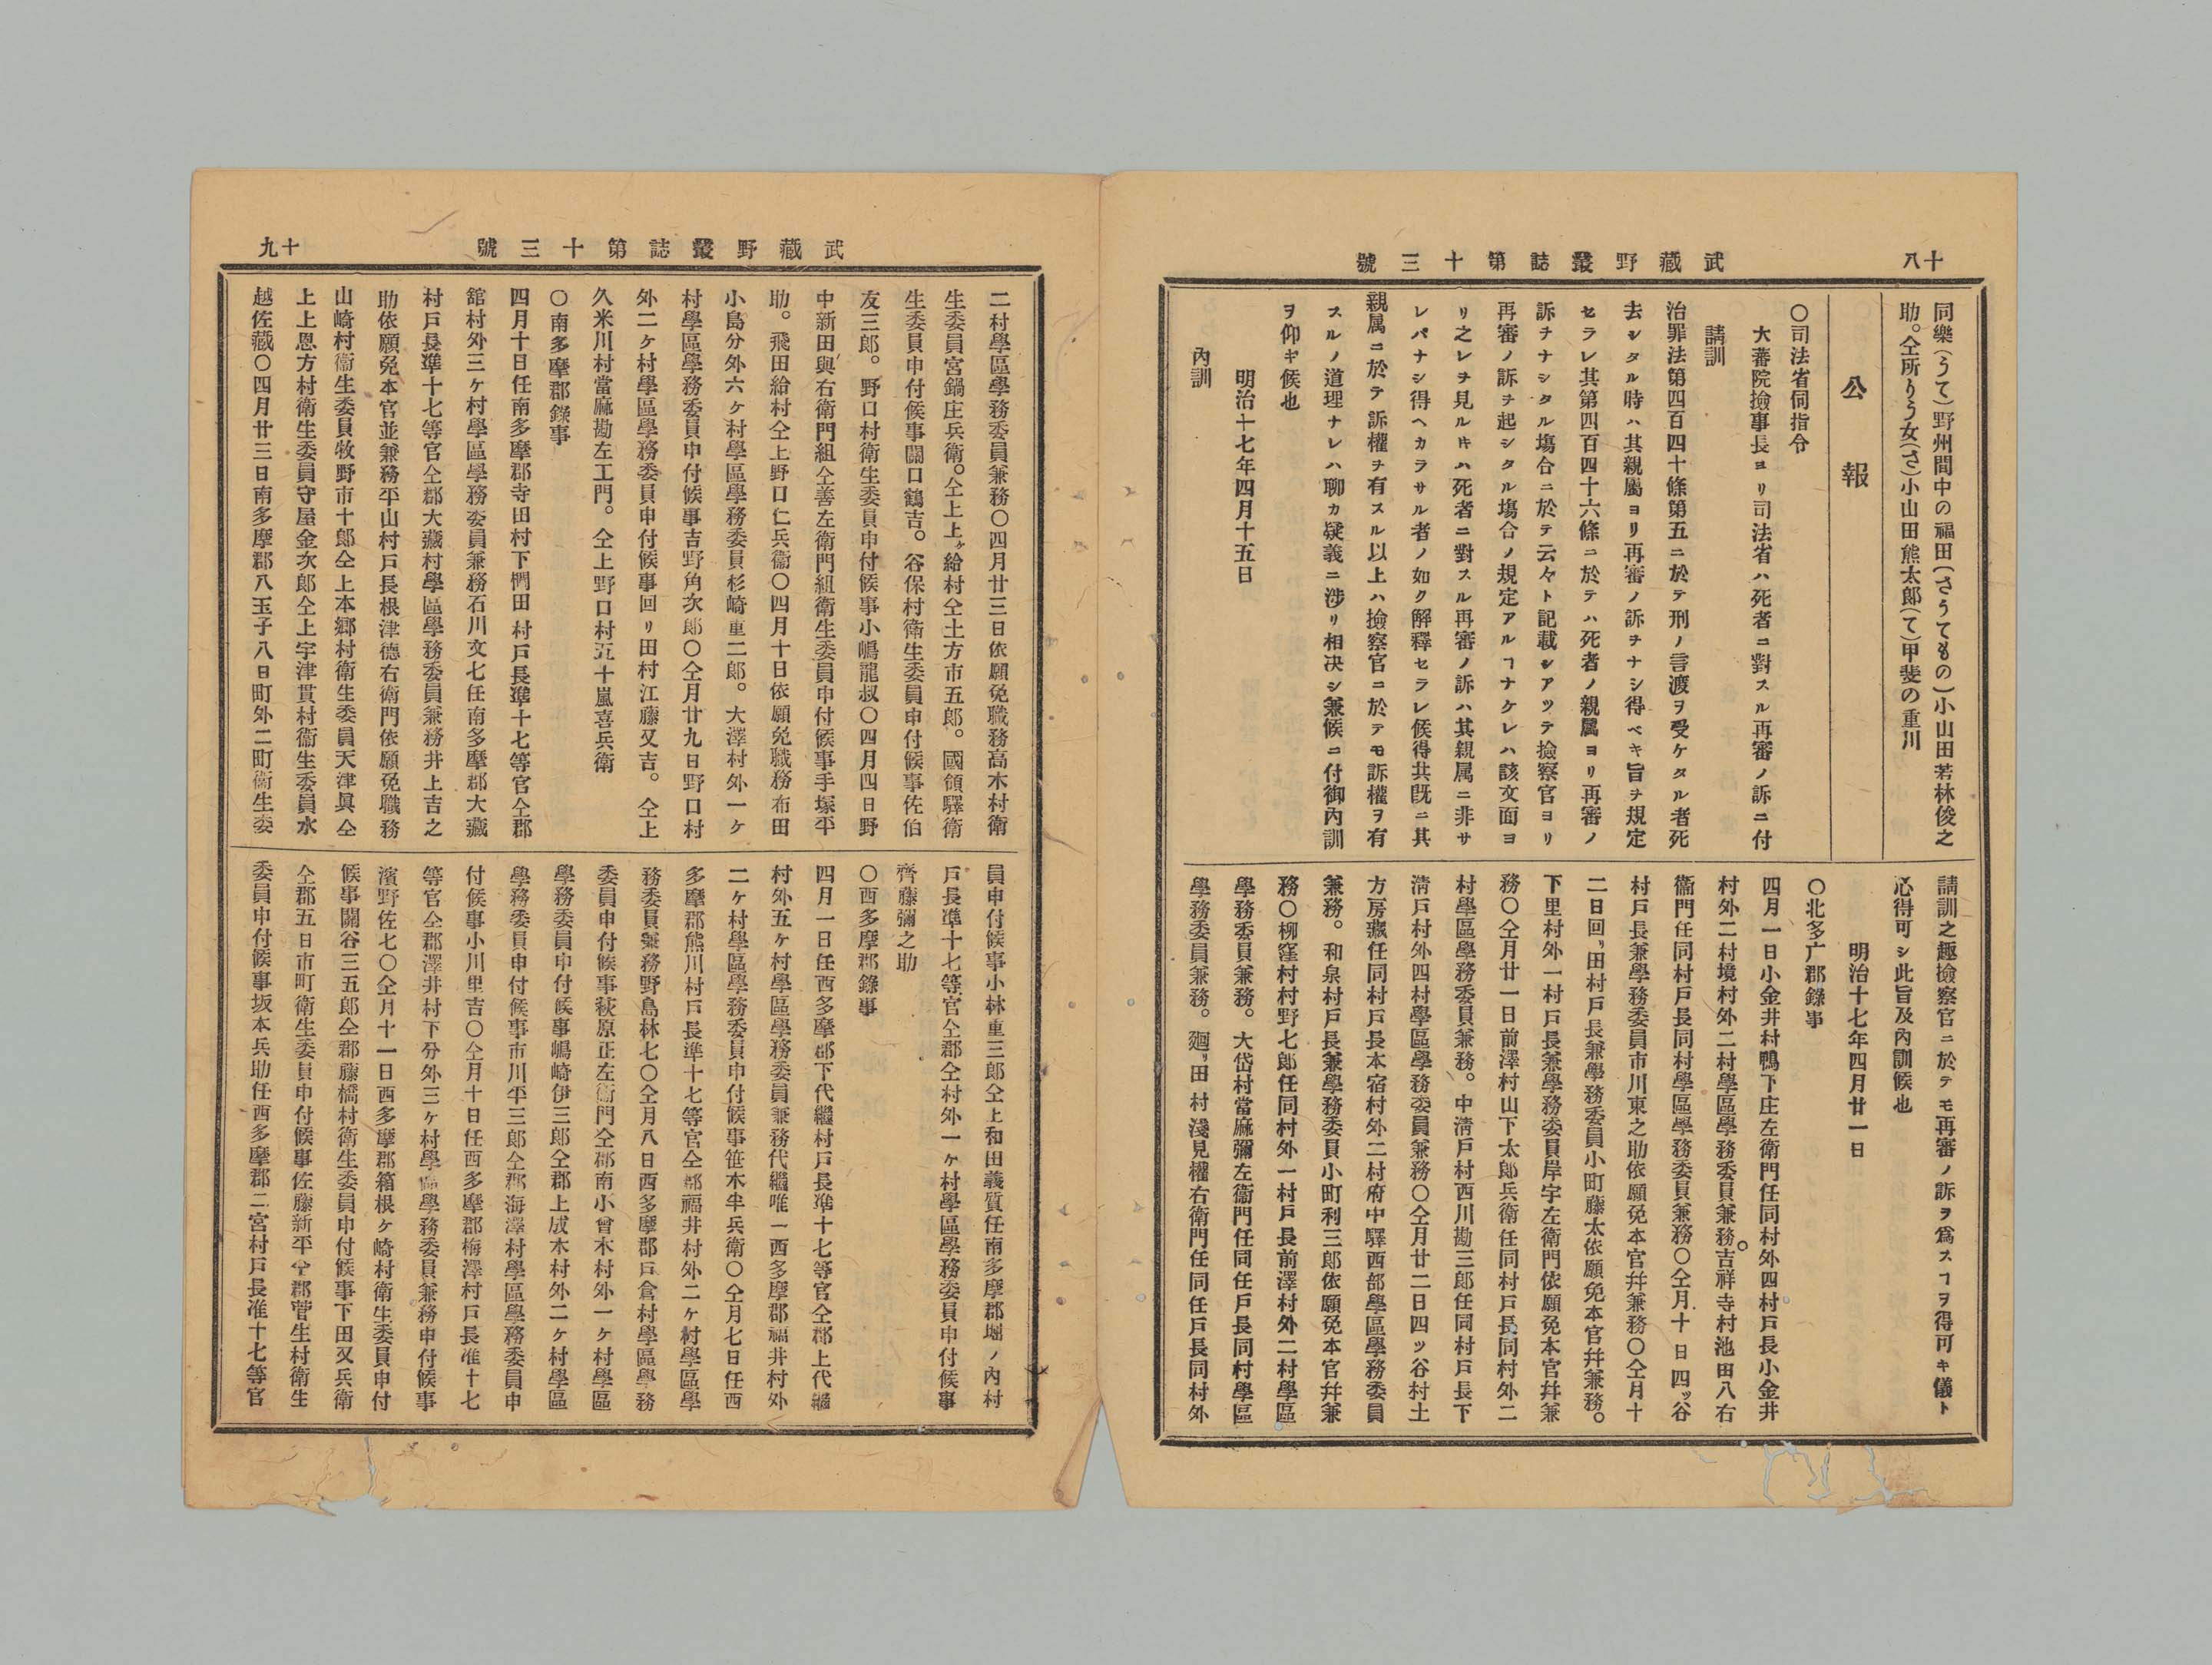 十八
武藏野叢誌第十三號
同樂(うて)野州間中の福田(さうてもの)小山田若林俊之
助。仝所りう女(さ)小山田熊太郎(て)甲斐の重川
公報
〇司法省伺指令
大審院撿事長ヨリ司法省ハ死者ニ對スル再審ノ訴ニ付
請訓
治罪法第四百四十條第五ニ於テ刑ノ言渡ヲ受ケタル者死
去シタル時ハ其親屬ヨリ再審ノ訴ヲナシ得ベキ旨ヲ規定
セラレ其第四百四十六條ニ於テハ死者ノ親屬ヨリ再審ノ
訴ヲナシタル塲合ニ於テ云々ト記載シアツテ撿察官ヨリ
再審ノ訴ヲ起シタル塲合ノ規定アルヿナケレハ該文面ヨ
リ之レヲ見ル𪜈ハ死者ニ對スル再審ノ訴ハ其親属ニ非サ
レバナシ得ヘカラサル者ノ如ク解釋セラレ候得共既ニ其
親属ニ於テ訴權ヲ有スル以上ハ撿察官ニ於テモ訴權ヲ有
スルノ道理ナレハ聊カ疑義ニ涉リ相决シ兼候ニ付御內訓
ヲ仰キ候也
明治十七年四月十五日
內訓
請訓之趣撿察官ニ於テモ再審ノ訴ヲ爲スヿヲ得可キ儀ト
心得可シ此旨及內訓候也
明治十七年四月廿一日
〇北多广郡錄事
四月一日小金井村鴨下庄左衛門任同村外四村戶長小金井
村外二村境村外二村學區學務委員兼務。吉祥寺村池田八右
衞門任同村戶長同村學區學務委員兼務〇仝月十日四ッ谷
村戶長兼學務委員市川東之助依願免本官幷兼務〇仝月十
二日回リ田村戶長兼學務委員小町藤太依願免本官幷兼務。
下里村外一村戶長兼學務委員岸宇左衛門依願免本官幷兼
務〇仝月廿一日前澤村山下太郎兵衛任同村戶長同村外二
村學區學務委員兼務。中淸戶村西川勘三郎任同村戶長下
淸戶村外四村學區學務委員兼務〇仝月廿二日四ッ谷村土
方房藏任同村戶長本宿村外二村府中驛西部學區學務委員
兼務。和泉村戶長兼學務委員小町利三郎依願免本官幷兼
務〇柳窪村村野七郎任同村外一村戶長前澤村外二村學區
學務委員兼務。大岱村當麻彌左衞門任同任戶長同村學區
學務委員兼務。廻リ田村淺見權右衛門任同任戶長同村外
十九
武藏野叢誌第十三號
二村學區學務委員兼務〇四月廿三日依願免職務高木村衛
生委員宮鍋庄兵衛。仝上上ヶ給村仝土方市五郎。國領驛衛
生委員申付候事關口鶴吉。谷保村衛生委員申付候事佐伯
友三郎。野口村衛生委員申付候事小嶋龍叔〇四月四日野
中新田與右衛門組仝善左衛門組衛生委員申付候事手塚平
助。飛田給村仝上野口仁兵衞〇四月十日依願免職務布田
小島分外六ヶ村學區學務委員杉崎重二郎。大澤村外一ヶ
村學區學務委員申付候事吉野角次郎〇仝月廿九日野口村
外二ヶ村學區學務委員申付候事回リ田村江藤又吉。仝上
久米川村當麻勘左工門。仝上野口村五十嵐喜兵衛
〇南多摩郡錄事
四月十日任南多摩郡寺田村下椚田村戶長準十七等官仝郡
舘村外三ヶ村學區學務委員兼務石川文七任南多摩郡大藏
村戶長準十七等官仝郡大藏村學區學務委員兼務井上吉之
助依願免本官並兼務平山村戶長根津德右衛門依願免職務
山崎村衞生委員牧野市十郎仝上本鄕村衛生委員天津眞仝
上上恩方村衛生委員守屋金次郎仝上宇津貫村衞生委員水
越佐藏〇四月廿三日南多摩郡八王子八日町外二町衞生委
員申付候事小林重三郎仝上和田義質任南多摩郡堀ノ內村
戶長準十七等官仝郡仝村外一ヶ村學區學務委員申付候事
齊藤彌之助
〇西多摩郡錄事
四月一日任西多摩郡下代繼村戶長準十七等官仝郡上代繼
村外五ヶ村學區學務委員兼務代繼唯一西多摩郡福井村外
二ヶ村學區學務委員申付候事笹木半兵衛〇仝月七日任西
多摩郡熊川村戶長準十七等官仝郡福井村外二ヶ村學區學
務委員兼務野島林七〇仝月八日西多摩郡戶倉村學區學務
委員申付候事萩原正左衞門仝郡南小曾木村外一ヶ村學區
學務委員申付候事嶋崎伊三郎仝郡上成木村外二ヶ村學區
學務委員申付候事市川平三郎仝郡海澤村學區學務委員申
付候事小川里吉〇仝月十日任西多摩郡梅澤村戶長准十七
等官仝郡澤井村下分外三ヶ村學區學務委員兼務申付候事
濱野佐七〇仝月十一日西多摩郡箱根ヶ崎村衛生委員申付
候事關谷三五郎仝郡藤橋村衛生委員申付候事下田又兵衛
仝郡五日市町衛生委員申付候事佐藤新平仝郡菅生村衛生
委員申付候事坂本兵助任西多摩郡二宮村戶長准十七等官